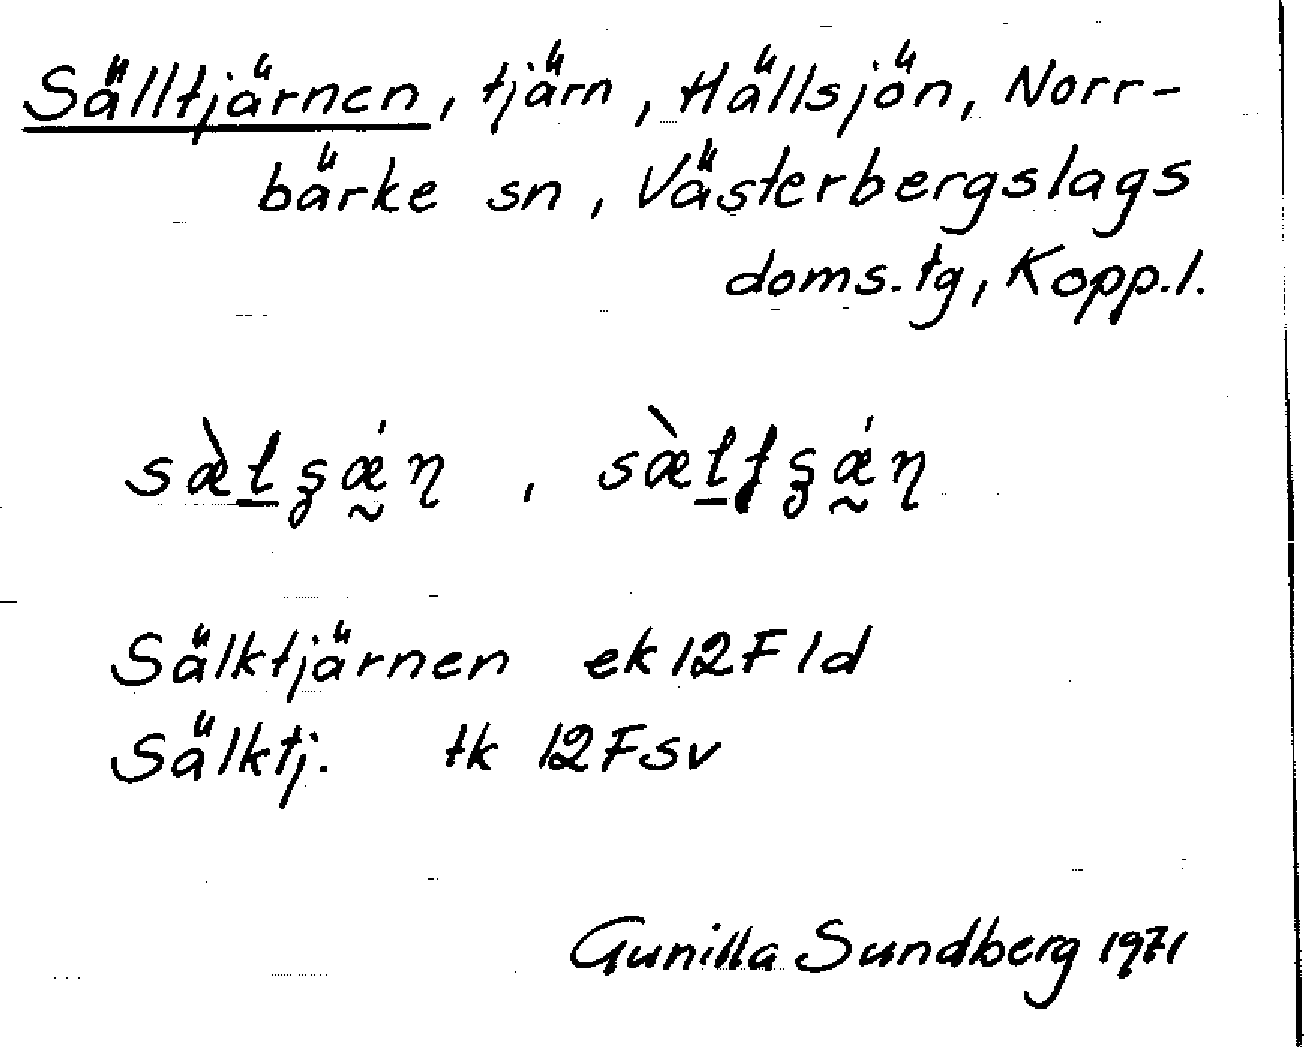 Sälltjärnen, tjärn, Hällsjön, Norr-
bärke sn, Västerbergslags
doms.tg, Kopp.l.
Sälktjärnen ek 12F 1d
Sälktj. tk 12F sv
Gunilla Sundberg 1971